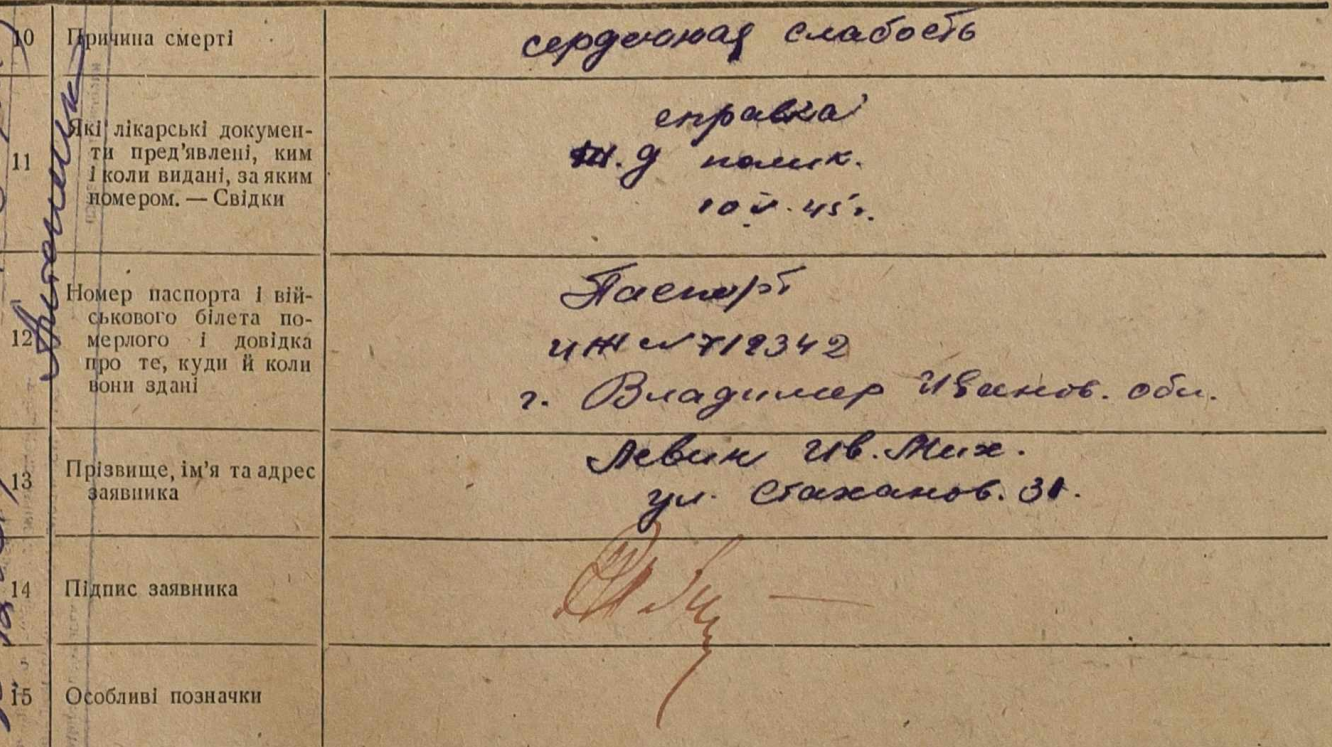 10 Причина смерті
сердечная слабость
11 Які лікарські докумен-
ти пред'явлені, ким
і коли видані, за яким
номером. — Свідки
справка
ж.д полик.
10 V. 45 г.
12 Номер паспорта і вій-
ськового білета по-
мерлого і довідка
про те, куди й коли
вони здані
Паспорт
ИЖ № 719342
г. Владимир Иванов. обл.
13 Прізвище, ім'я та адрес
заявника
Левин Ив. Мих.
ул. Стаханов. 31.
14 Підпис заявника
15 Особливі позначки